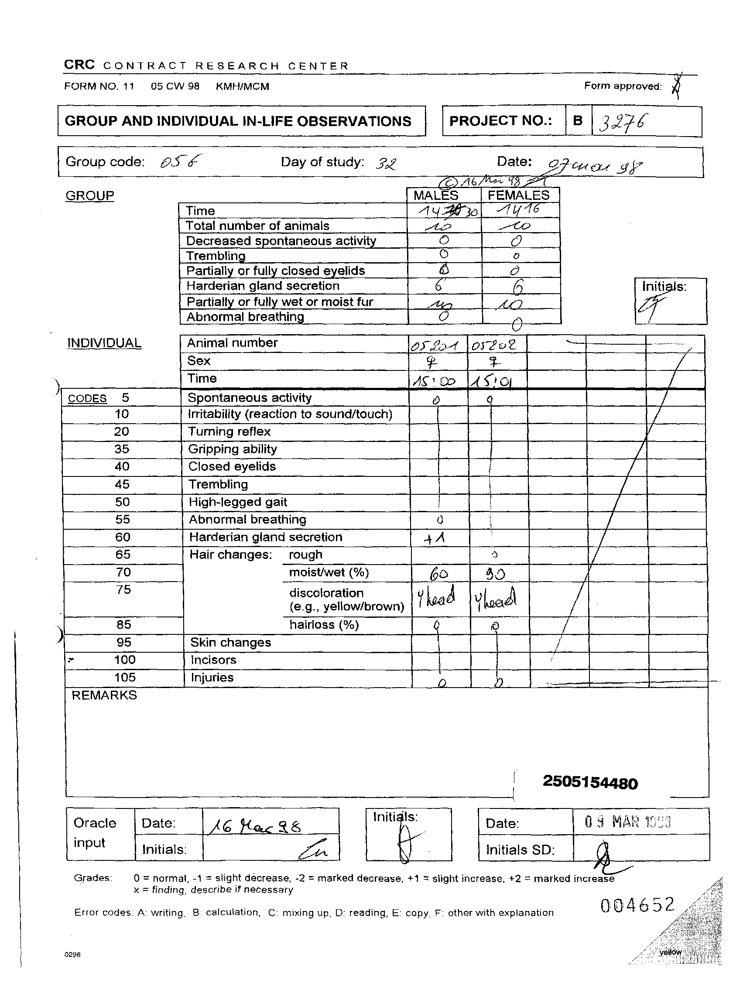 CRC CONTRACT RESEARCH CENTER
FORM NO. 11 05 CW 98 KMH/MCM Form approved:
GROUP AND INDIVIDUAL IN-LIFE OBSERVATIONS PROJECT NO.: B 3276
Group code: 056 Day of study: 32 Date: 07 mar 98
GROUP
© 16 Mar 98
MALES FEMALES
Time 14 30 1416
Total number of animals 10 10
Decreased spontaneous activity 0 0
Trembling 0 0
Partially or fully closed eyelids 0 0
Harderian gland secretion 6 6
Partially or fully wet or moist fur 10 10
Abnormal breathing 0 0
Initials:
INDIVIDUAL Animal number 05201 05202
Sex ♀ ♀
Time 15:00 15:01
CODES 5 Spontaneous activity 0 0
10 Irritability (reaction to sound/touch)
20 Turning reflex
35 Gripping ability
40 Closed eyelids
45 Trembling
50 High-legged gait
55 Abnormal breathing 0
60 Harderian gland secretion +1
65 Hair changes: rough 0
70 moist/wet (%) 60 90
75 discoloration
(e.g., yellow/brown) y head y head
85 hairloss (%) 0 0
95 Skin changes
100 Incisors
105 Injuries 0 0
REMARKS
2505154480
Oracle input Date: 16 Mar 98 Initials: Date: 09 MAR 1998
Initials: Initials SD:
Grades: 0 = normal, -1 = slight decrease, -2 = marked decrease, +1 = slight increase, +2 = marked increase
x = finding, describe if necessary
Error codes: A: writing, B: calculation, C: mixing up, D: reading, E: copy, F: other with explanation
004652
0296
yellow